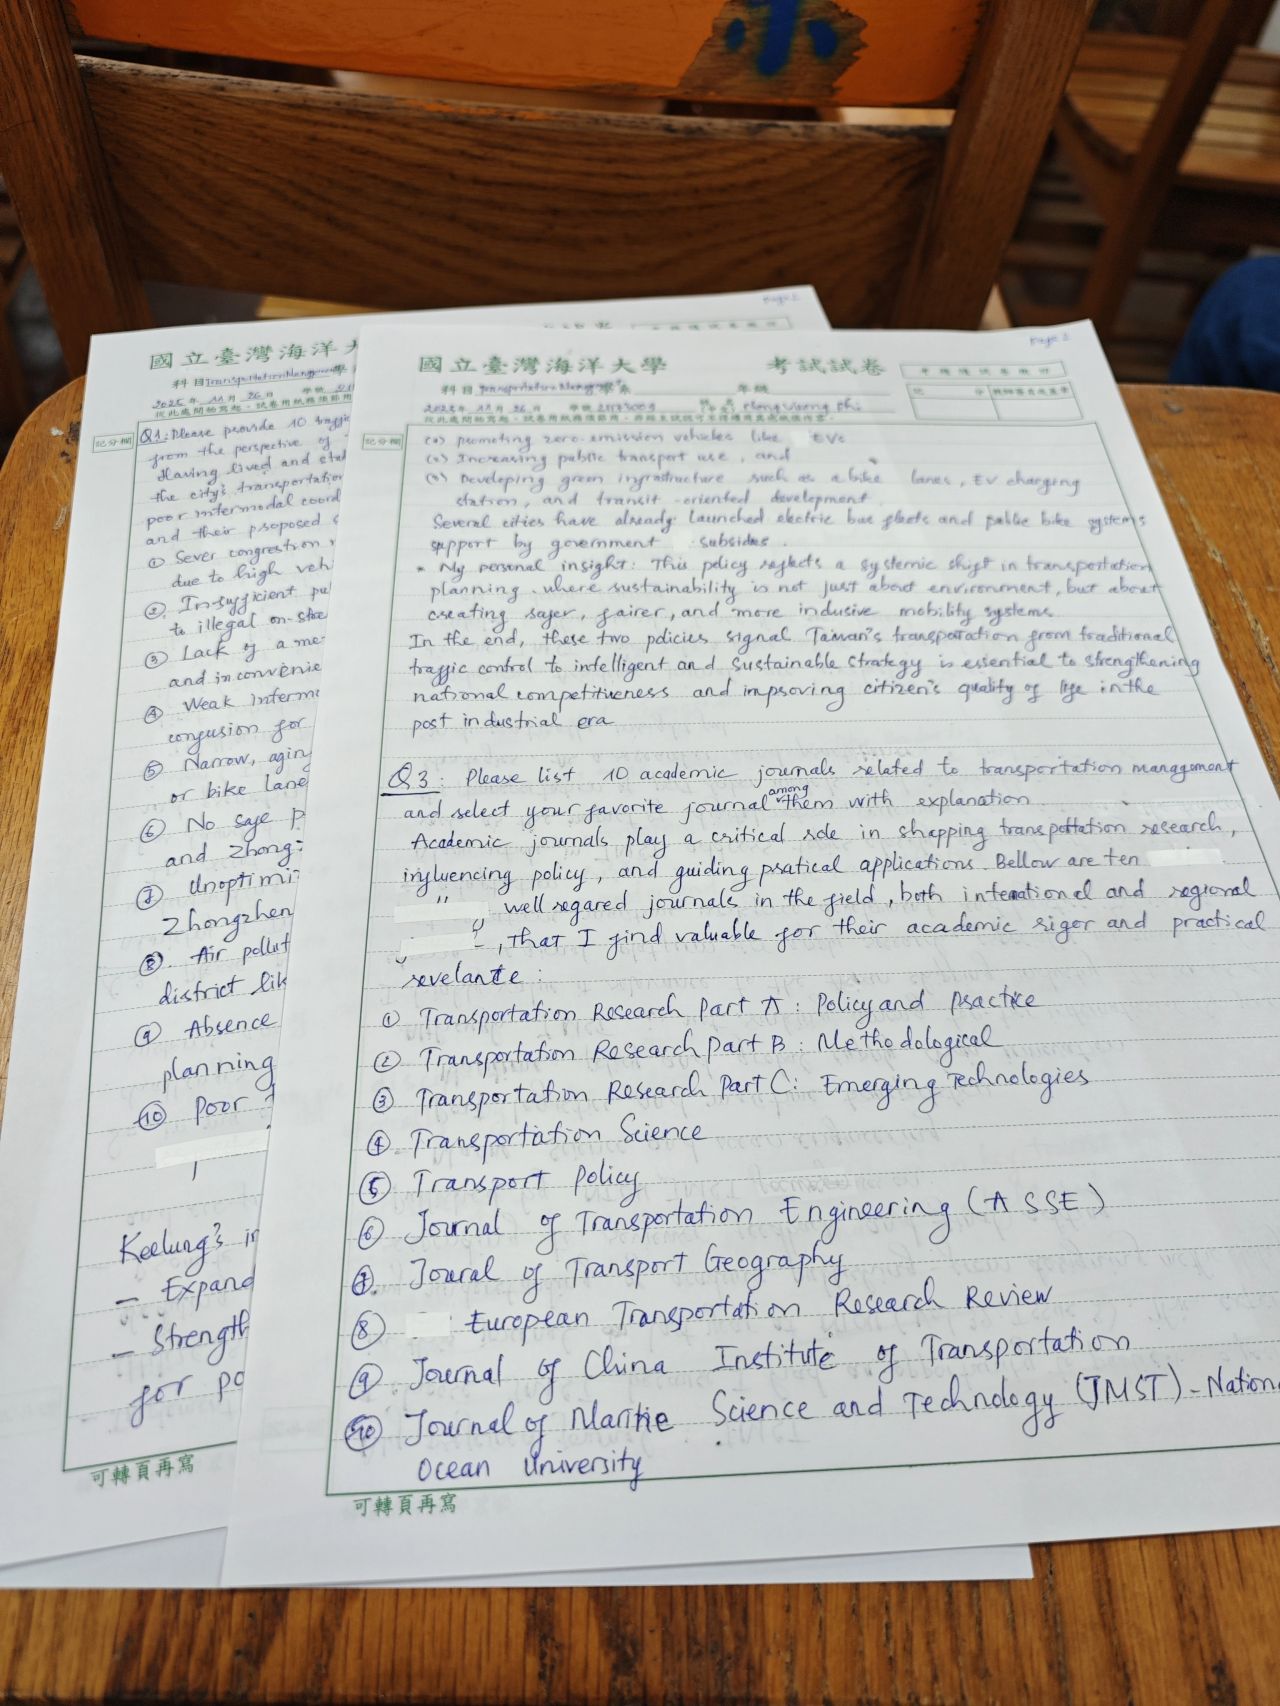 Page 2
國立臺灣海洋大
科目 Transportation Management 學
2025 年 11 月 26 日 學號
記分欄
Q1: Please provide 10 traffic
from the perspective of
Having lived and stu
the city's transportation
poor intermodal coord
and their proposed
① Sever congestion
due to high veh
② Insufficient pu
to illegal on-stre
③ Lack of a me
and inconvenie
④ Weak interm
confusion for
⑤ Narrow, agin
or bike lane
⑥ No safe p
and Zhong
⑦ Unoptimi
Zhongzhen
⑧ Air pollut
district lik
⑨ Absence
planning
⑩ Poor
Keelung's in
– Expand
– Strength
for po
可轉頁再寫
國立臺灣海洋大學 考試試卷
科目 Transportation Management 學系 年級
2025 年 11 月 26 日 學號
記分欄
(a) promoting zero-emission vehicles like EVs
Increasing public transport use, and
Developing green infrastructure such as a bike lanes, EV charging
station, and transit-oriented development
Several cities have already launched electric bus fleets and public bike systems
support by government subsides.
* My personal insight: This policy reflects a systemic shift in transportation
planning where sustainability is not just about environment, but about
creating safer, fairer, and more inclusive mobility systems.
In the end, these two policies signal Taiwan's transportation from traditional
traffic control to intelligent and sustainable strategy is essential to strengthening
national competitiveness and improving citizen's quality of life in the
post industrial era
Q3: Please list 10 academic journals related to transportation management
and select your favorite journal among them with explanation
Academic journals play a critical role in shapping transpottation research,
influencing policy, and guiding pratical applications. Bellow are ten
well regared journals in the field, both intenational and regional
, that I find valuable for their academic rigor and practical
revelante:
① Transportation Research Part A: Policy and Practice
② Transportation Research Part B: Methodological
③ Transportation Research Part C: Emerging Technologies
④ Transportation Science
⑤ Transport Policy
⑥ Journal of Transportation Engineering (ASSE)
⑦ Joural of Transport Geography
⑧ European Transportation Research Review
⑨ Journal of China Institute of Transportation
⑩ Journal of Maritie Science and Technology (JMST) - Nation
Ocean University
可轉頁再寫